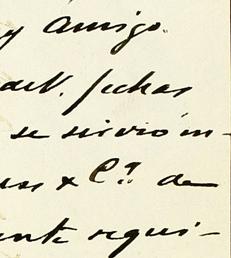 y Amigo.
de V. fechas
se sirvió in-
& C.ª de
ente requi-